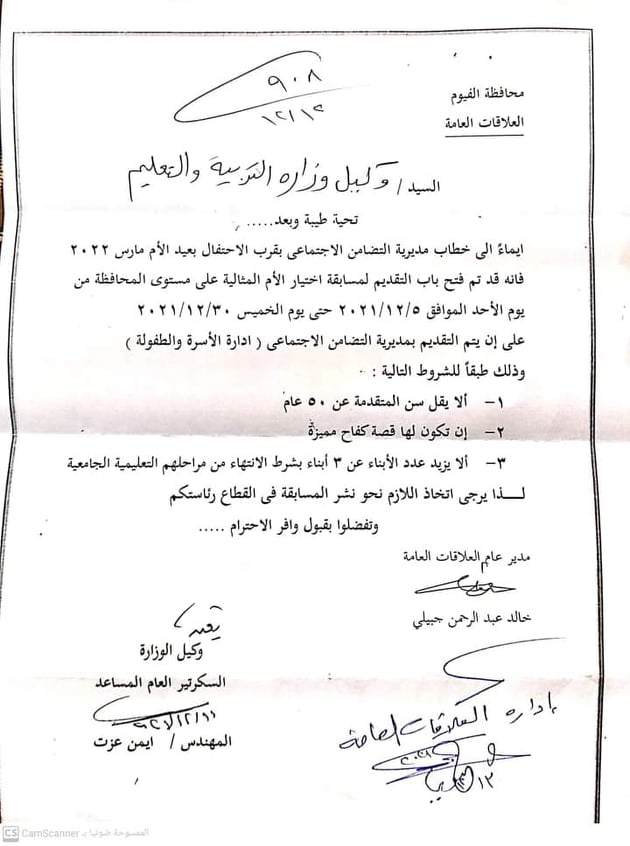 ٩٠٨
١٢/١٢
محافظة الفيوم
العلاقات العامة
السيد / وكيل وزارة التربية والتعليم
تحية طيبة وبعد.....
ايماءً الى خطاب مديرية التضامن الاجتماعى بقرب الاحتفال بعيد الأم مارس ٢٠٢٢
فانه قد تم فتح باب التقديم لمسابقة اختيار الأم المثالية على مستوى المحافظة من
يوم الأحد الموافق ٢٠٢١/١٢/٥ حتى يوم الخميس ٢٠٢١/١٢/٣٠
على إن يتم التقديم بمديرية التضامن الاجتماعى ( ادارة الأسرة والطفولة )
وذلك طبقاً للشروط التالية :
١- ألا يقل سن المتقدمة عن ٥٠ عام
٢- إن تكون لها قصة كفاح مميزة
٣- ألا يزيد عدد الأبناء عن ٣ أبناء بشرط الانتهاء من مراحلهم التعليمية الجامعية
لـــذا يرجى اتخاذ اللازم نحو نشر المسابقة فى القطاع رئاستكم
وتفضلوا بقبول وافر الاحترام .....
مدير عام العلاقات العامة
خالد عبد الرحمن جبيلي
يعتمد
وكيل الوزارة
السكرتير العام المساعد
المهندس / ايمن عزت
إدارة العلاقات العامة
١٢/١٣
CS CamScanner الممسوحة ضوئيا بـ